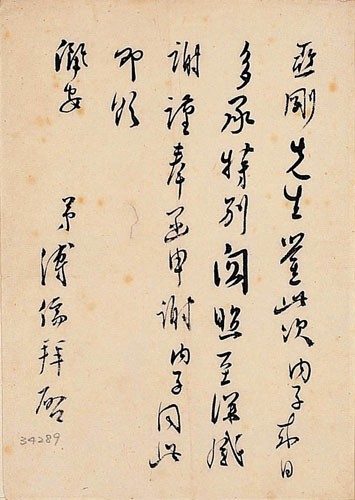 亞剛先生鑒此次內子来日
多承特別関照至深感
謝謹奉函申謝內子同此
即頌
安
弟溥儒拜啓
34289